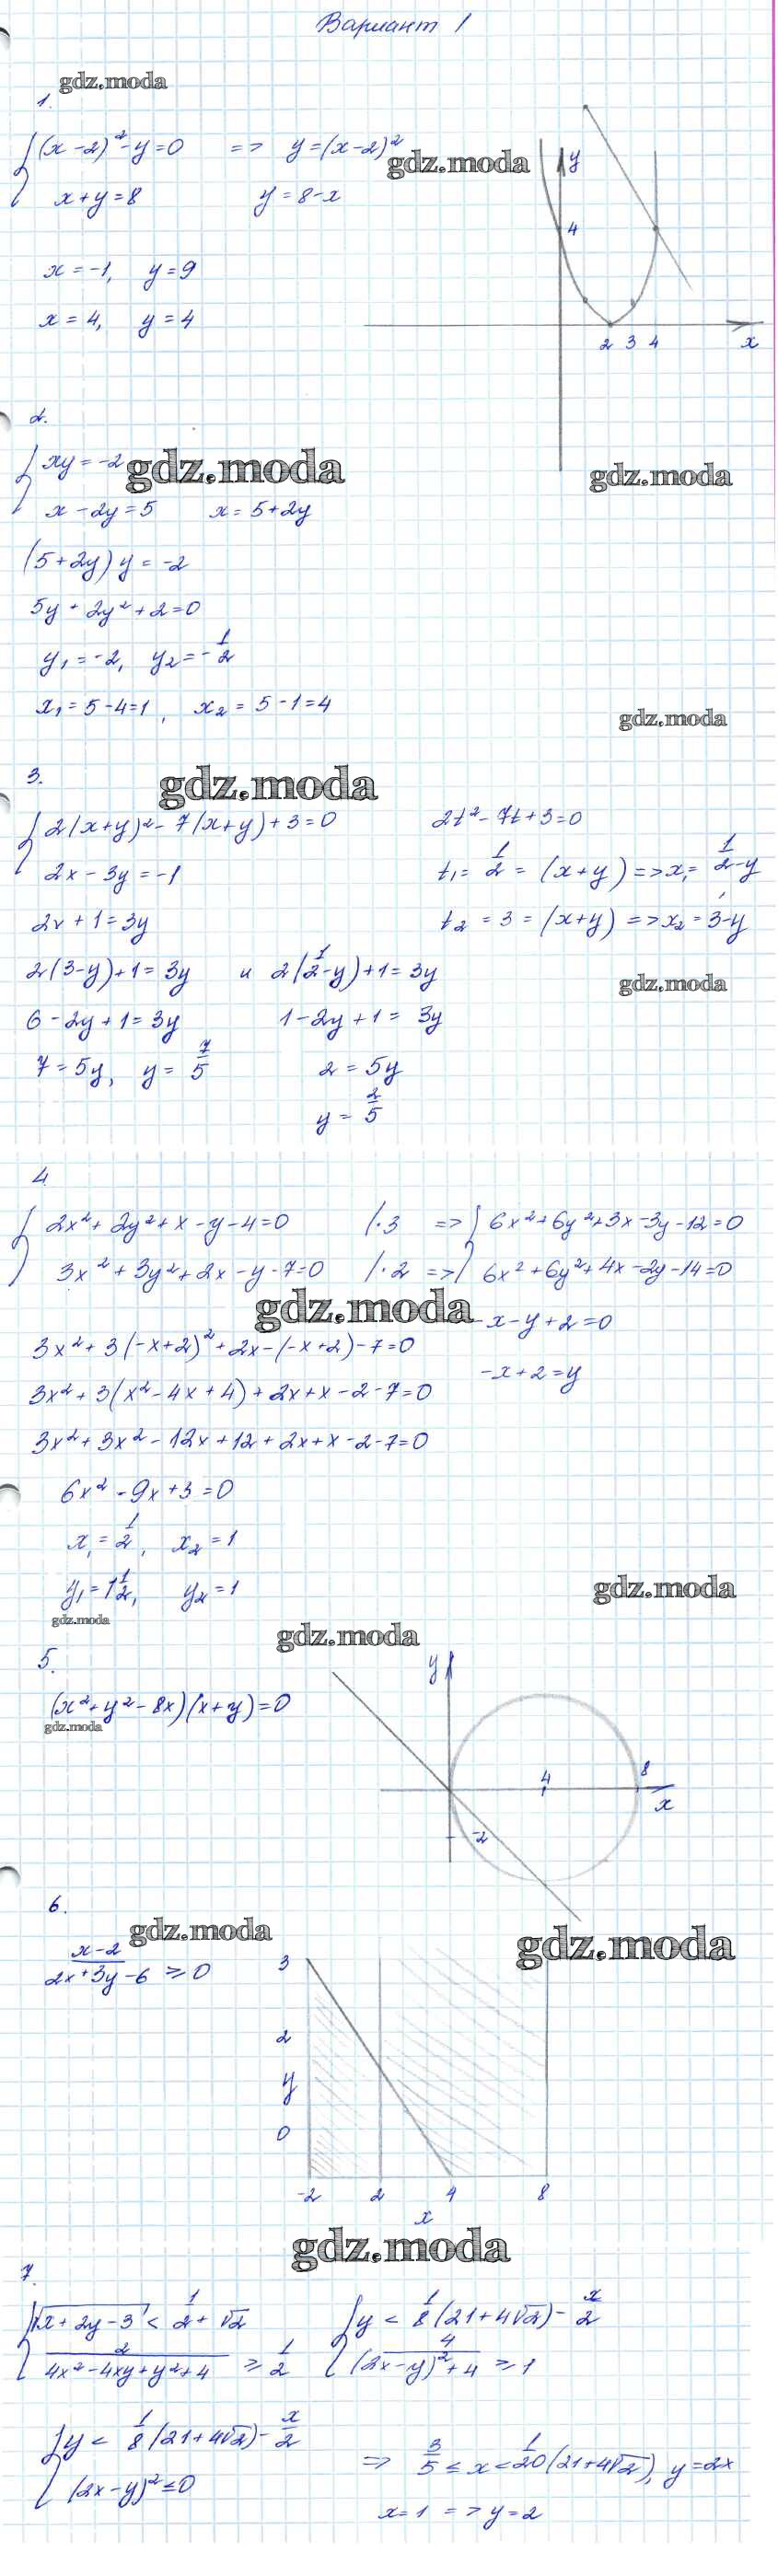 Вариант 1
gdz.moda
1.
(x-2)²-y=0 => y=(x-2)²
gdz.moda
y
x+y=8 y=8-x
4
x=-1, y=9
x=4, y=4
2 3 4 x
2.
xy=-2
gdz.moda
gdz.moda
x-2y=5 x=5+2y
(5+2y)y=-2
5y+2y²+2=0
y₁=-2, y₂=-1/2
x₁=5-4=1, x₂=5-1=4
gdz.moda
3.
gdz.moda
2(x+y)²-7(x+y)+3=0 2t²-7t+3=0
2x-3y=-1 t₁=1/2=(x+y)=>x₁=1/2-y
2x+1=3y t₂=3=(x+y)=>x₂=3-y
2(3-y)+1=3y и 2(1/2-y)+1=3y
gdz.moda
6-2y+1=3y 1-2y+1=3y
7=5y, y=7/5 2=5y
y=2/5
4
2x²+2y²+x-y-4=0 /·3 => 6x²+6y²+3x-3y-12=0
3x²+3y²+2x-y-7=0 /·2 => 6x²+6y²+4x-2y-14=0
gdz.moda
-x-y+2=0
3x²+3(-x+2)²+2x-(-x+2)-7=0
-x+2=y
3x²+3(x²-4x+4)+2x+x-2-7=0
3x²+3x²-12x+12+2x+x-2-7=0
6x²-9x+3=0
x₁=1/2, x₂=1
y₁=1 1/2, y₂=1
gdz.moda
gdz.moda
gdz.moda
5.
y
(x²+y²-8x)(x+y)=0
gdz.moda
4 8
x
-2
6.
gdz.moda
gdz.moda
(x-2)/(2x+3y-6) ≥0
3
2
y
0
-2 2 4 8
x
gdz.moda
7.
√(x+2y-3) < 1/2+√2 y < 1/8(21+4√2)-x/2
2/(4x²-4xy+y²+4) ≥ 1/2 4/((2x-y)²+4) ≥1
y < 1/8(21+4√2)-x/2
(2x-y)²≤0 => 3/5 ≤ x < 1/20(21+4√2), y=2x
x=1 => y=2